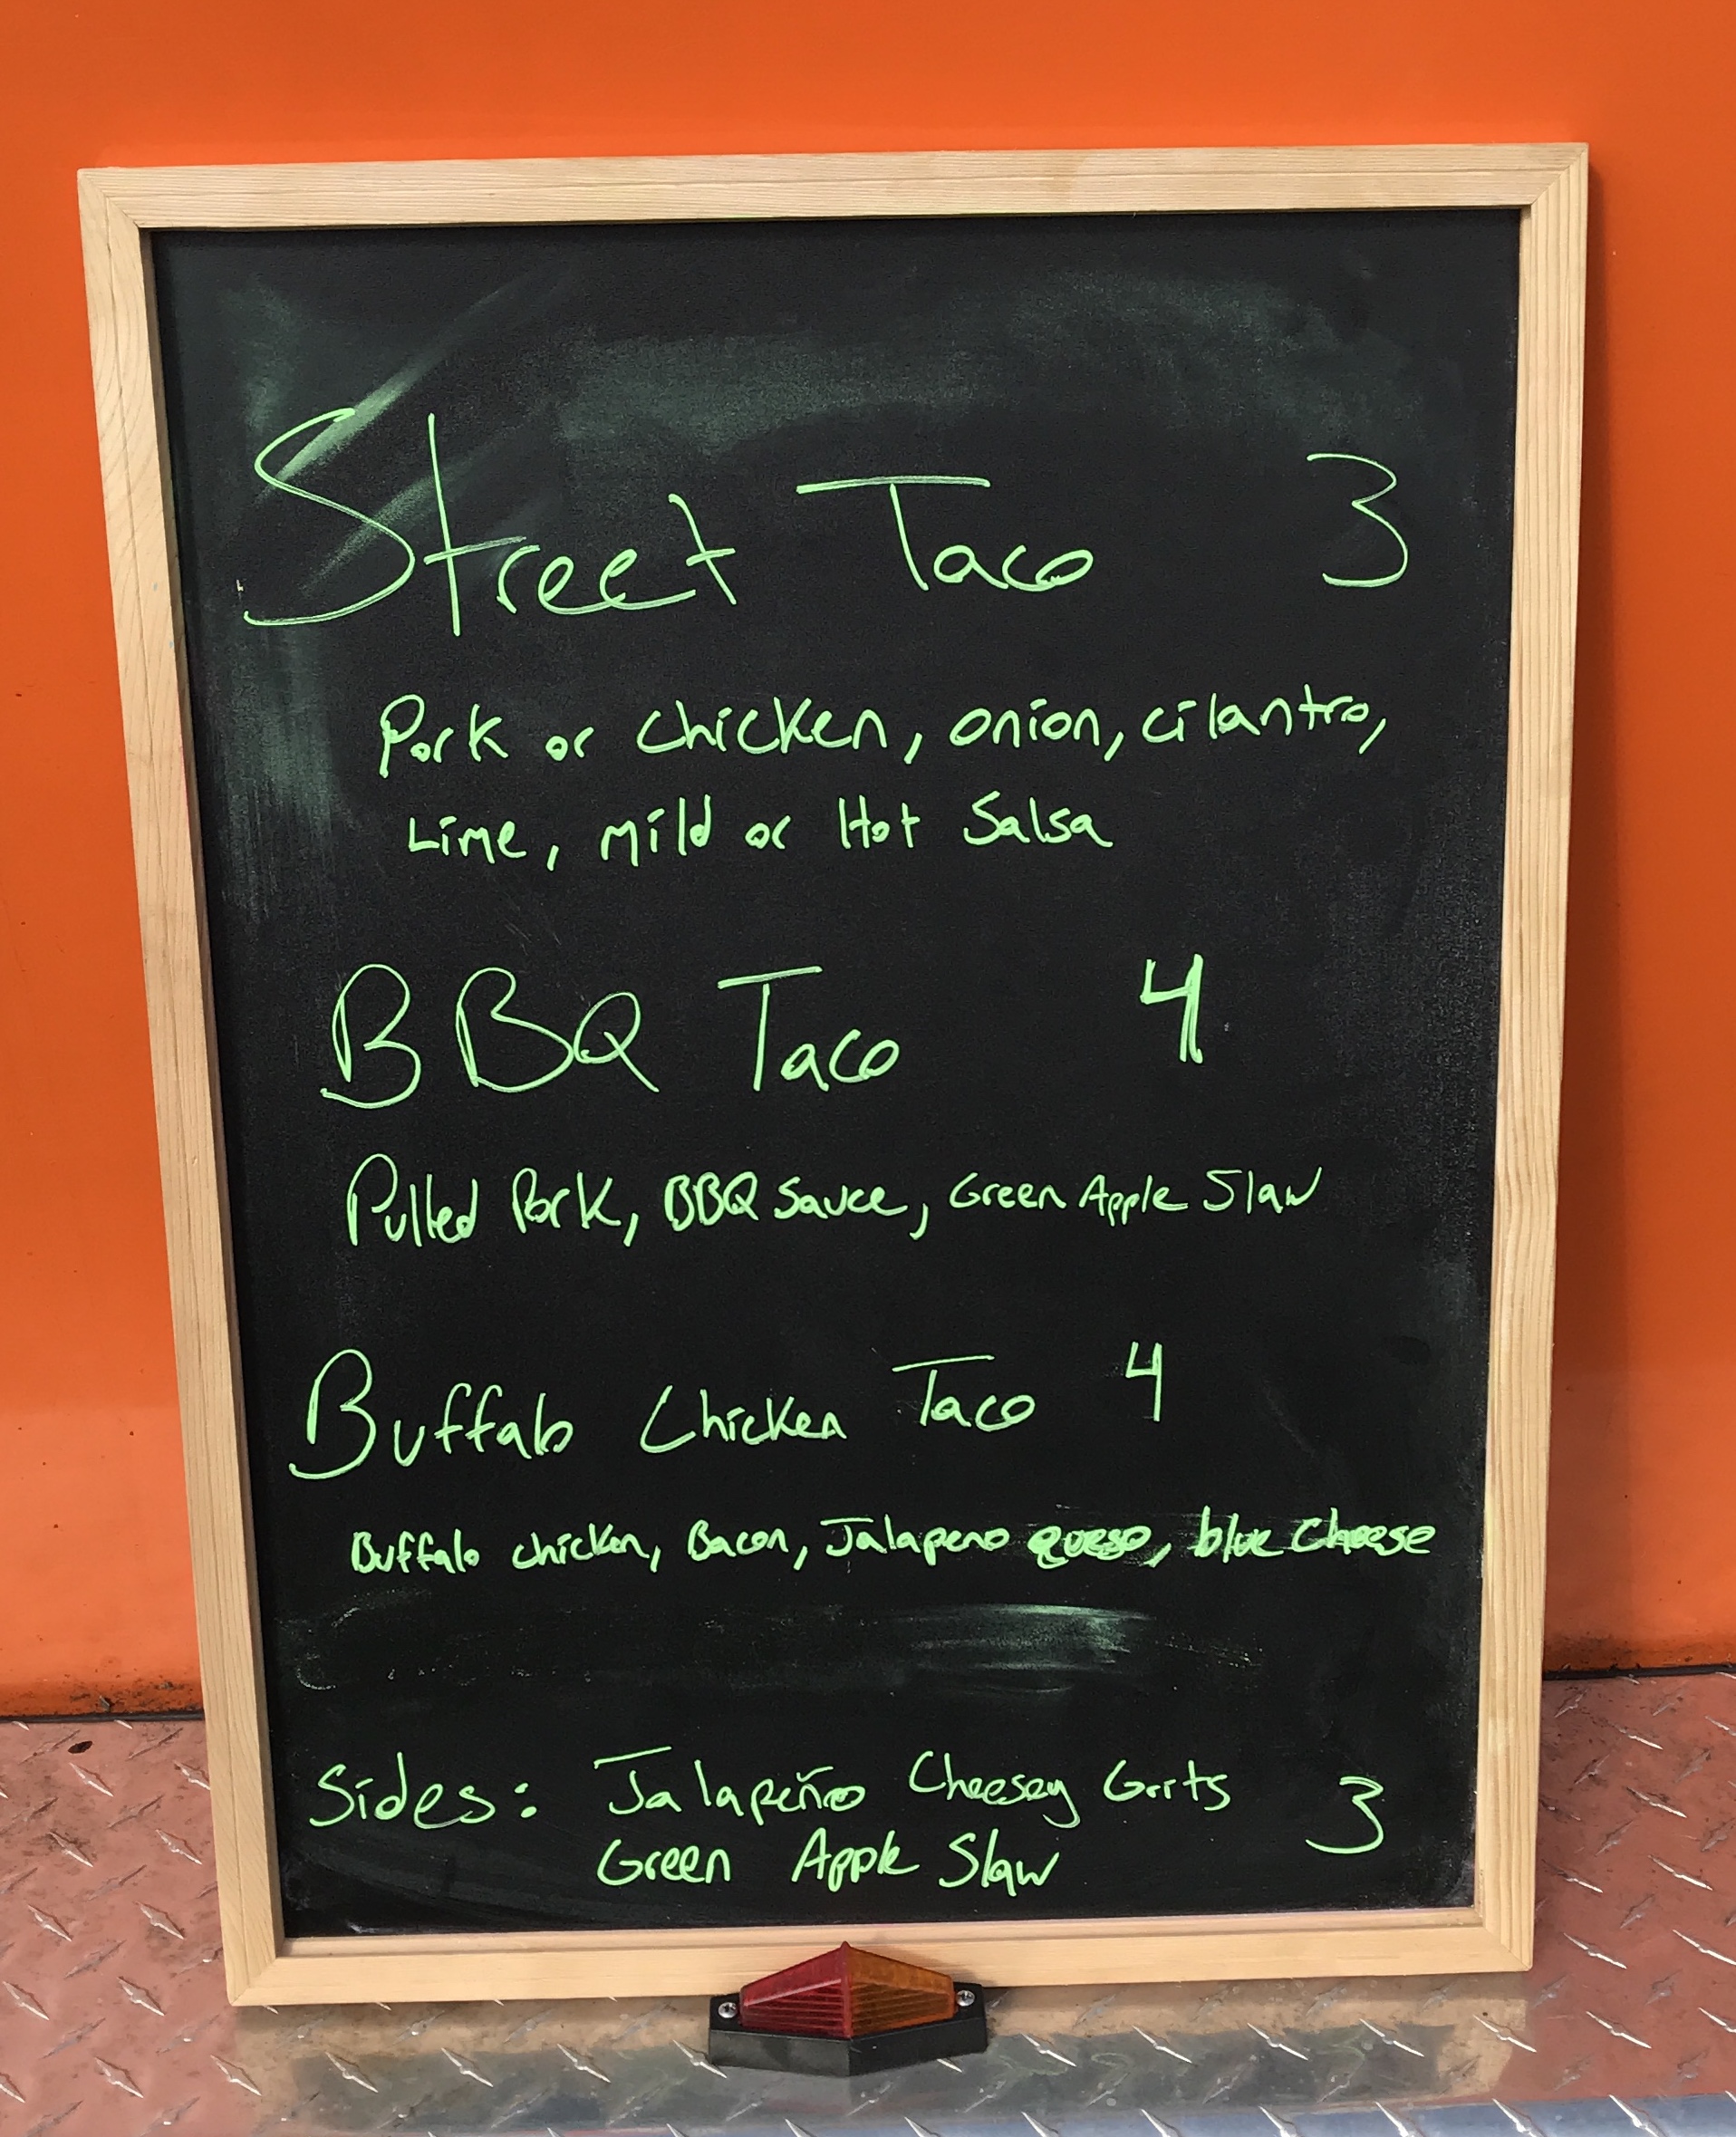 Street Taco 3
Pork or chicken, onion, cilantro,
Lime, mild or Hot Salsa
BBQ Taco 4
Pulled Pork, BBQ Sauce, Green Apple Slaw
Buffalo Chicken Taco 4
Buffalo chicken, Bacon, Jalapeno queso, blue cheese
Sides: Jalapeño Cheesey Grits 3
Green Apple Slaw